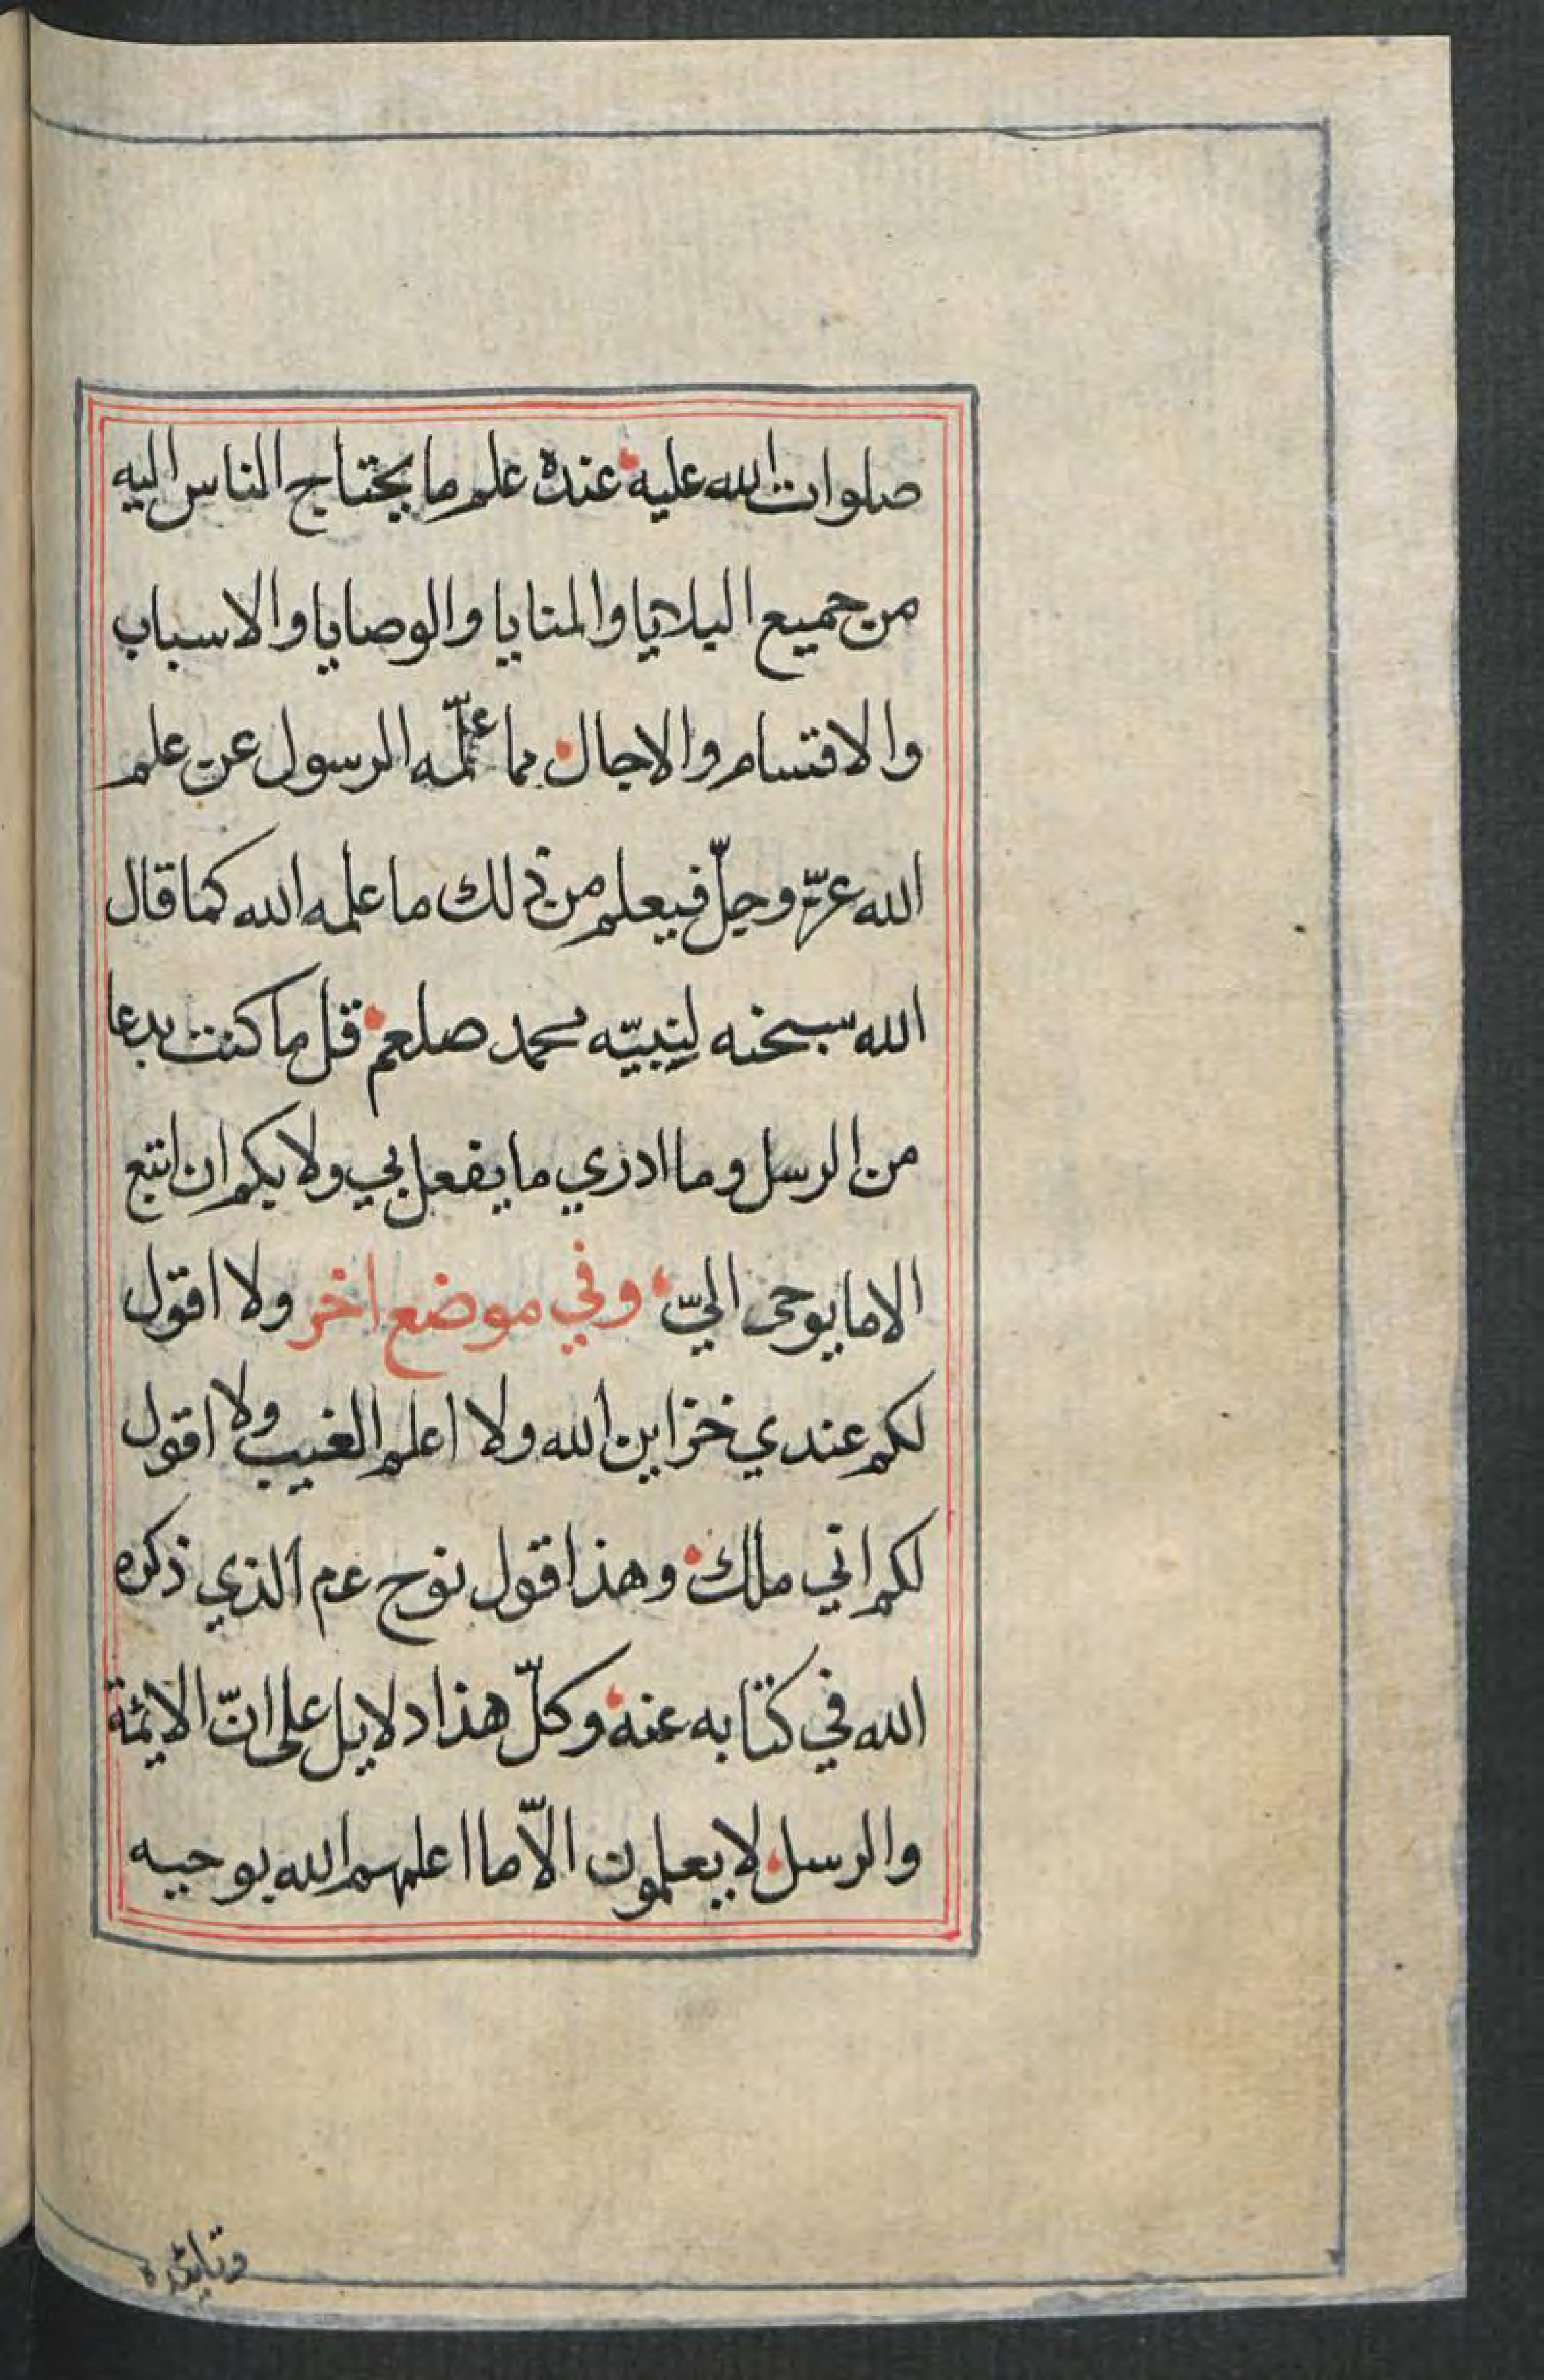 صلوات الله عليه عنده علم ما يحتاج الناس اليه
من جميع البلايا والمنايا والوصايا والاسباب
والاقتسام والاجال مما علّمه الرسول عن علم
الله عزّ وجلّ فيعلم من ذلك ما علمه الله كما قال
الله سبحنه لنبيّه محمد صلعم قل ما كنت بدعا
من الرسل وما ادري ما يفعل بي ولا بكم ان اتبع
الا ما يوحى اليّ وفي موضع اخر ولا اقول
لكم عندي خزاين الله ولا اعلم الغيب ولا اقول
لكم اني ملك وهذا قول نوح عم الذي ذكره
الله في كتابه عنه وكلّ هذا دلايل على انّ الائمة
والرسل لا يعلمون الّا ما اعلمهم الله بوحيه
وتائيده